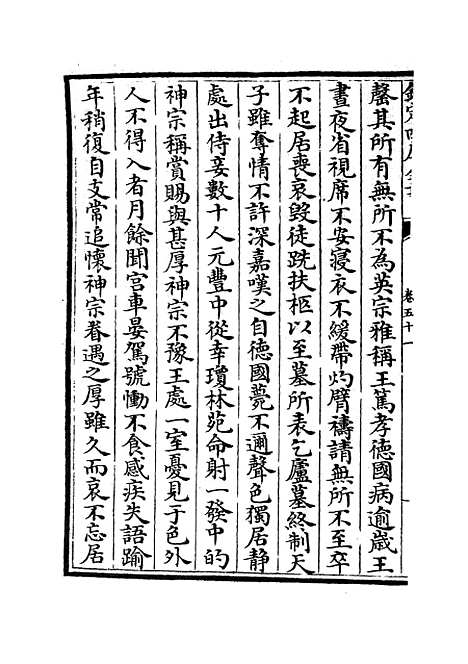 罄其所有無所不為英宗雅稱王篤孝德國病逾歲王
晝夜省視席不安寢衣不緩帶灼臂禱請無所不至卒
不起居喪哀毀徒跣扶柩以至墓所表乞廬墓終制天
子雖奪情不許深嘉嘆之自德國薨不邇聲色獨居靜
處出侍妾數十人元豐中從幸瓊林苑命射一發中的
神宗稱賞賜與甚厚神宗不豫王處一室憂見于色外
人不得入者月餘聞宮車晏駕號慟不食感疾失語踰
年稍復自支常追懷神宗眷遇之厚雖久而哀不忘居
卷五十一